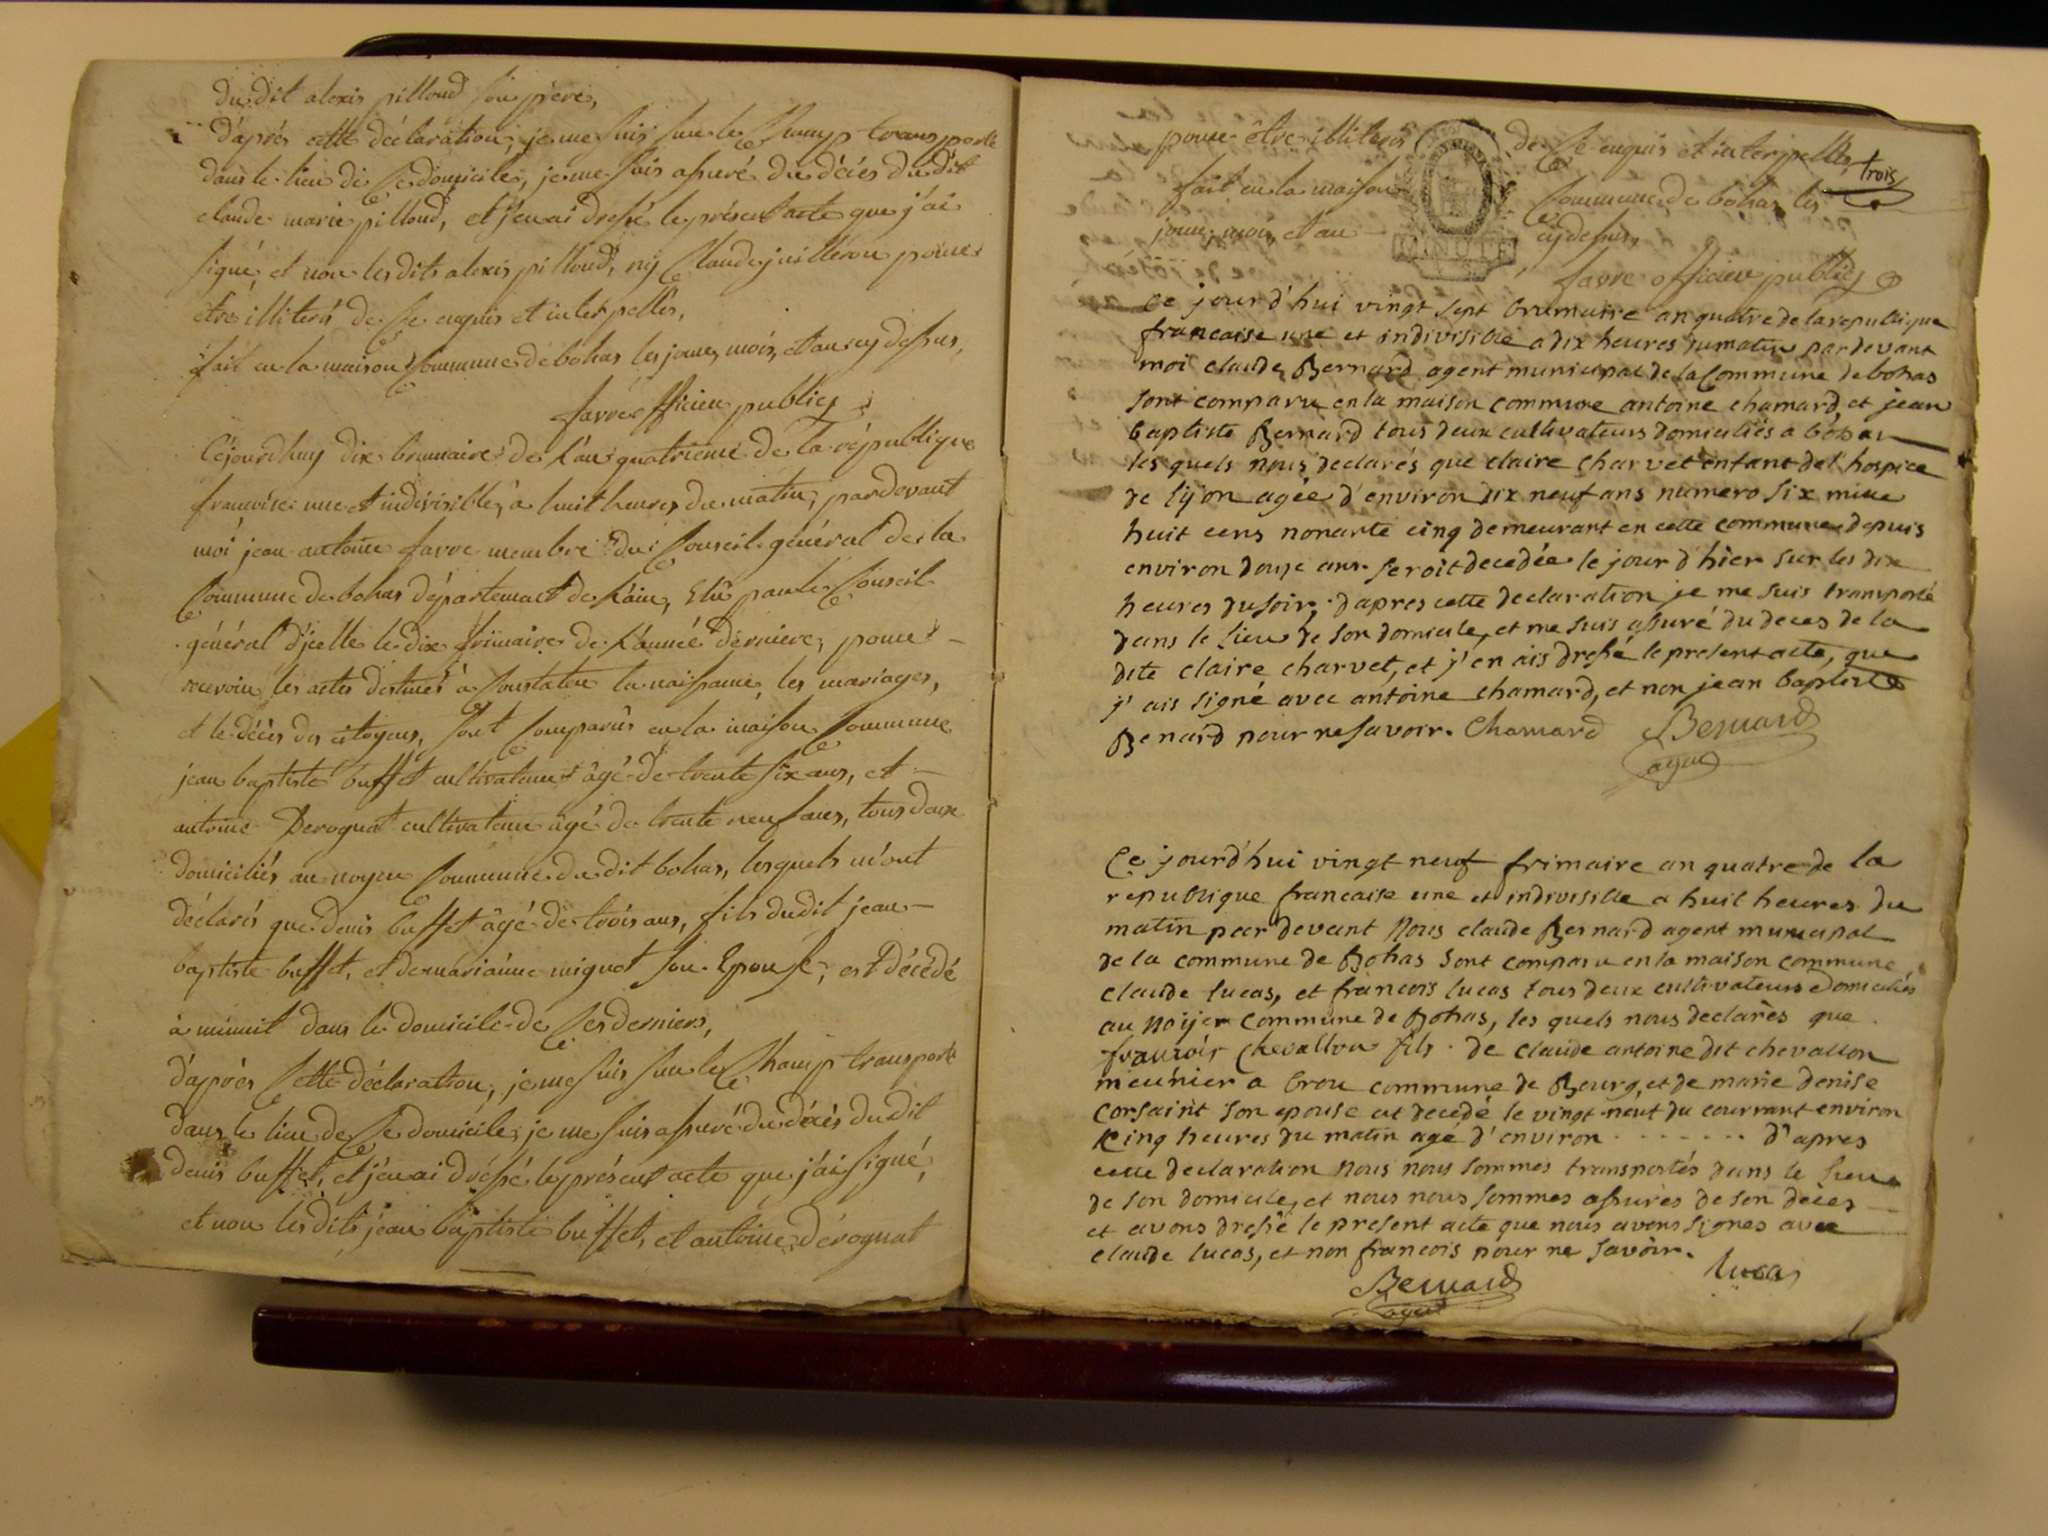 dudit alexis pilloud son frere,
d'après cette déclaration, je me suis sur le Champ transporté
dans le lieu de Ce domicile, je me suis assuré du décès dudit
claude marie pilloud, et j'en ai dressé le présent acte que j'ai
signé, et non lesdits alexis pilloud, ny Claude juilleron pour
être illiterés de Ce enquis et interpellés,
fait en la maison Commune de bohas les jour, mois, et an cy dessus,
favre officier public
Cejourdhuy dix brumaire de l'an quatrieme de la république
francoise une et indivisible, à huit heures du matin, pardevant
moi jean antoine favre membre du Conseil général de la
Commune de bohas département de l'ain, Elu par le Conseil
général d'jcelle le dix frimaire de l'année derniere, pour
recevoir les actes destinés à Constater la naissance, les mariages,
et le décès des citoyens, sont Comparûs en la maison Commune
jean baptiste buffet cultivateur âgé de trente six ans, et
antoine Derognat cultivateur âgé de trente neuf ans, tous deux
domiciliés au noyer Commune du dit bohas, lesquels m'ont
déclarés que denis buffet âgé de trois ans, fils dudit jean
baptiste buffet, et de marianne mignot son Epouse, est décédé
à minuit dans le domicile de Ces derniers,
d'après Cette déclaration, je me suis sur le Champ transporté
dans le lieu de Ce domicile, je me suis assuré du décès dudit
denis buffet, et j'en ai dréssé le présent acte que j'ai signé,
et non lesdits jean baptiste buffet, et antoine dérognat
pour être illiterés de Ce enquis et interpellés,
trois
fait en la maison Commune de bohas les
jour, mois, et an cy dessus,
MINUTE
favre officier public
Ce jour d'hui vingt sept brumaire an quatre de la republique
francaise une et indivisible a dix heures du matin par devant
moi claude Bernard agent municipal de la Commune de bohas
sont comparu en la maison commune antoine chamard, et jean
baptiste Bernard tous deux cultivateurs domiciliés a bohas
les quels nous declarés que claire charvet enfant de l'hospice
de lijon agée d'environ dix neuf ans numero six mille
huit cens nonante cinq demeurant en cette commune depuis
environ douze ans seroit decedée le jour d'hier sur les dix
heures du soir, d'apres cette declaration je me suis transporté
dans le lieu de son domicile, et me suis assuré du deces de la
dite claire charvet, et j'en ais dressé le present acte, que
j'ais signé avec antoine chamard, et non jean baptiste
Benard pour ne savoir. Chamard Bernard
agent
Ce jourd'hui vingt neuf frimaire an quatre de la
republique francaise une et indivisible a huit heures du
matin par devant Nous claude Bernard agent municipal
de la commune de Bohas sont comparu en la maison commune
claude lucas, et francois lucas tous deux cultivateurs domiciliés
au noijer commune de Bohas, les quels nous declarès que
francois Chevallon fils de claude antoine dit chevallon
meunier a brou commune de Bourg, et de marie denise
corsaint son epouse est decedé le vingt neuf du courrant environ
cinq heures du matin agé d'environ ....... d'apres
cette declaration nous nous sommes transportés dans le lieu
de son domicile, et nous nous sommes assurès de son décès
et avons dressé le present acte que nous avons signes avec
claude lucas, et non francois pour ne savoir.
lucas
Bernard
agent